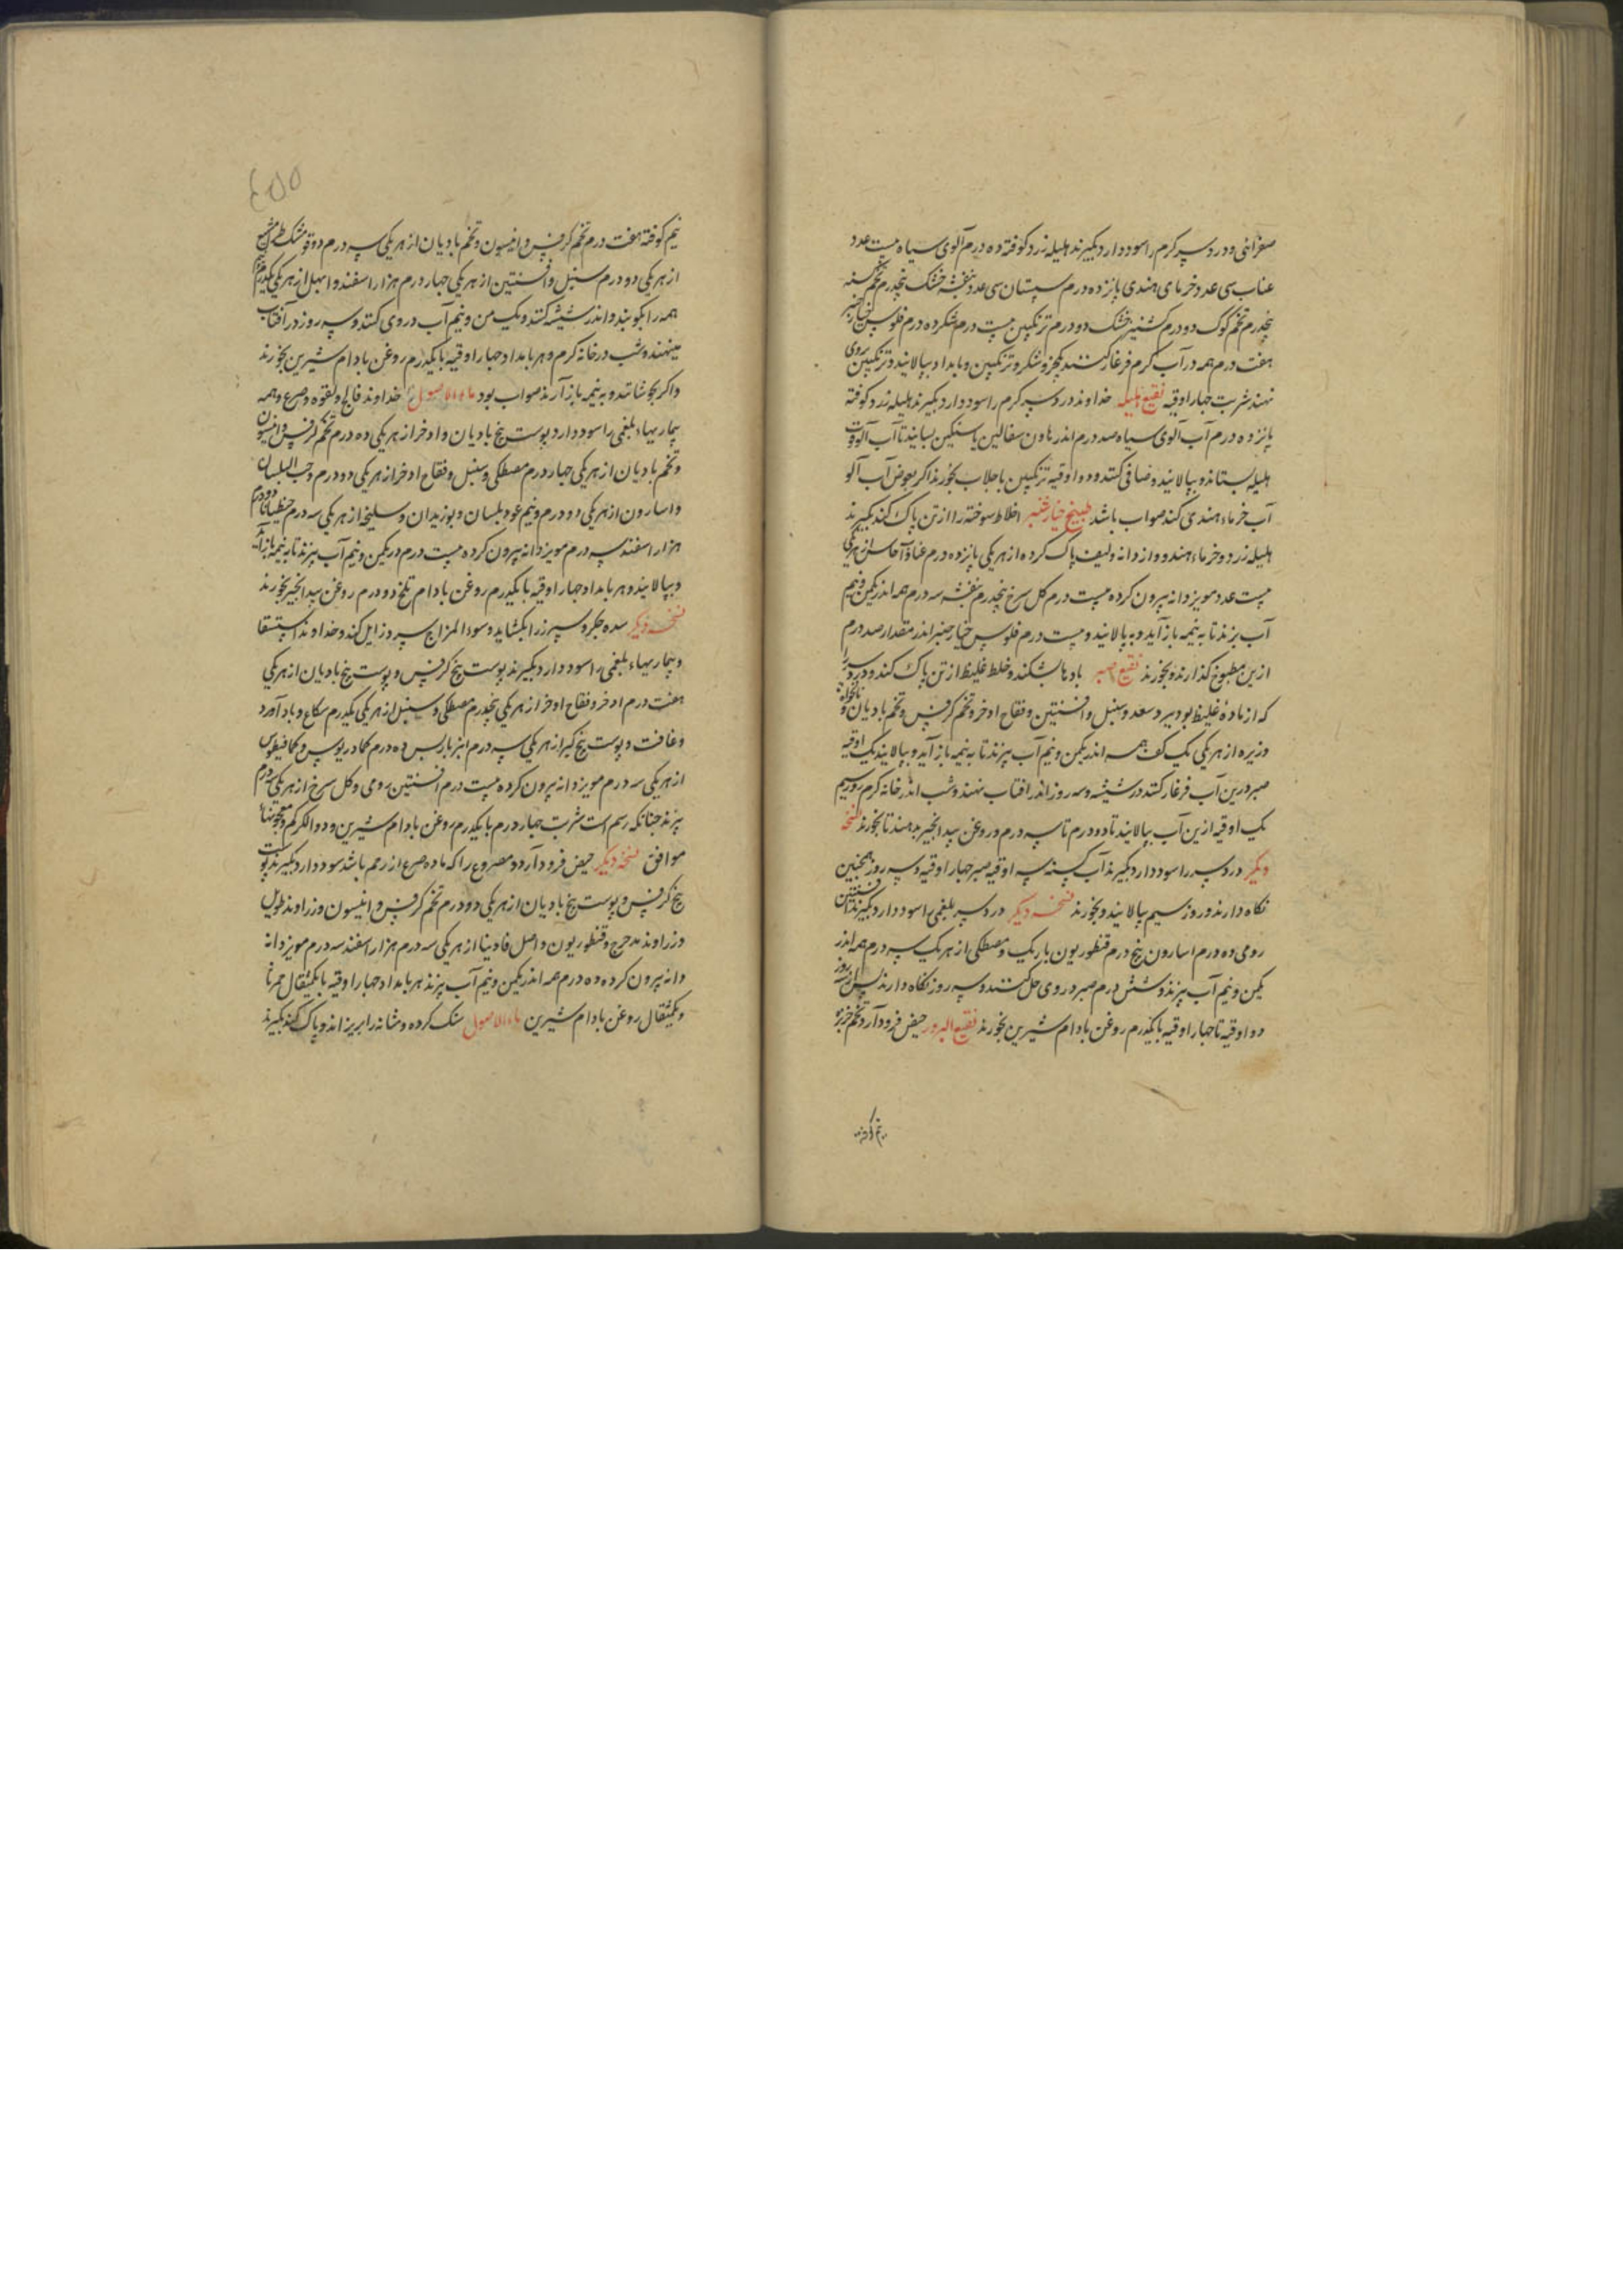 صفرائی و درد سر کرم را سود دارد بکیرند هلیله زرد کوفته ده درم آلوی سیاه بیست عدد
عناب سی عدد خرمای هندی پانزده درم سپستان سی عدد بنفشه خشک پنجدرم تخم کسنه
پنجدرم تخم کوک دو درم کشنیز خشک دو درم ترنکبین بیست درم شکر ده درم فلوس خیارچنبر
هفت درم همه در آب کرم فرغار کنند بجز شکر و ترنکبین و بامداد بپالایند و ترنکبین بروی
نهند شربت چهار اوقیه نقیع هلیله خداوند درد سر کرم را سود دارد بکیرند هلیله زرد کوفته
پانزده درم آب آلوی سیاه صد درم اندر هاون سفالین یا سنکین بسایند تا آب آلو قوت
هلیله بستاند و بپالایند و صافی کنند و دو اوقیه ترنکبین با جلاب بخورند اکر بعوض آب آلو
آب خرماء هندی کنند صواب باشد طبیخ خیارچنبر اخلاط سوخته را از تن پاک کند بکیرند
هلیله زرد و خرماء هندو و از دانه و لیف پاک کرده از هر یکی پانزده درم عناب و آجاص از هر یکی
بیست عدد مویز دانه بیرون کرده بیست درم کل سرخ پنجدرم بنفشه سه درم همه اندر یکمن و نیم
آب بپزند تا به نیمه باز آید و به پالایند و بیست درم فلوس خیارچنبر اندر مقدار صد درم
ازین مطبوخ کذارند و بخورند نقیع صبر بادها بشکند و خلط غلیظ از تن پاک کند و درد سر را
که از مادهٔ غلیظ بود ببرد سعد و سنبل و افسنتین و فقاح اذخر و تخم کرفس و تخم بادیان و نانخواه
و زیره از هر یکی یک کف همه اندر یکمن و نیم آب بپزند تا به نیمه باز آید و بپالایند یک اوقیه
صبر درین آب فرغار کنند در شیشه و سه روز اندر آفتاب نهند و شب اندر خانه کرم روز سیم
یک اوقیه ازین آب بپالایند تا دو درم تا سه درم روغن بیدانجیر بدهند تا بخورند نسخه
دیکر درد سر را سود دارد بکیرند آب کسنه سه اوقیه صبر چهار اوقیه و سه روز همچنین
نکاه دارند و روز سیم بپالایند و بخورند نسخه دیکر درد سر بلغمی را سود دارد بکیرند افسنتین
رومی ده درم اسارون پنج درم قنطوریون باریک و مصطکی از هر یک سه درم همه اندر
یکمن و نیم آب بپزند و شش درم صبر در وی حل کنند و سه روز نکاه دارند پس هر روز
دو اوقیه تا چهار اوقیه با یکدرم روغن بادام شیرین بخورند نقیع البزور حیض فرود آرد تخم خربزه
نیم کوفته
نیم کوفته هفت درم تخم کرفس و انیسون و تخم بادیان از هر یکی سه درم دوقو مشک طرامشیع
از هر یکی دو درم سنبل و افسنتین از هر یکی چهار درم هزار اسفند و ابهل از هر یکی یکدرم
همه را بکوبند و اندر شیشه کنند و یک من و نیم آب در وی کنند و سه روز در آفتاب
مینهند و شب در خانه کرم و هر بامداد چهار اوقیه با یکدرم روغن بادام شیرین بخورند
و اکر بجوشانند و به نیمه باز آرند صواب بود ماء الاصول خداوند فالج و لقوه و صرع و همه
بیماریهاء بلغمی را سود دارد پوست بیخ بادیان و اذخر از هر یکی ده درم تخم کرفس و انیسون
و تخم بادیان از هر یکی چهار درم مصطکی و سنبل و فقاح اذخر از هر یکی دو درم و حب البلسان
و اسارون از هر یکی دو درم و نیم عود بلسان و بوزیدان و سلیخه از هر یکی سه درم جنطیانا دو درم
هزار اسفند سه درم مویز دانه بیرون کرده بیست درم در یکمن و نیم آب بپزند تا به نیمه باز آید
و بپالایند و هر بامداد چهار اوقیه با یکدرم روغن بادام تلخ دو درم روغن بیدانجیر بخورند
نسخه دیکر سده جکر و سپرز را بکشاید و سوء المزاج سرد زایل کند و خداوند استسقا
و بیماریهاء بلغمی را سود دارد بکیرند پوست بیخ کرفس و پوست بیخ بادیان از هر یکی
هفت درم اذخر و فقاح اذخر از هر یکی پنجدرم مصطکی و سنبل از هر یکی یکدرم شکاع و بادآورد
و غافت و پوست بیخ کبر از هر یکی سه درم انبرباریس ده درم کمادریوس و کمافیطوس
از هر یکی سه درم مویز دانه بیرون کرده بیست درم افسنتین رومی و کل سرخ از هر یکی سه درم
بپزند چنانکه رسم است شربت چهار درم با یکدرم روغن بادام شیرین و دواالکرکم و معجونها
موافق نسخه دیکر حیض فرود آرد و مصروع را که ماده صرع از رحم باشد سود دارد بکیرند پوست
بیخ کرفس و پوست بیخ بادیان از هر یکی دو درم تخم کرفس و انیسون و زراوند طویل
و زراوند مدحرج و قنطوریون و اصل فاوینا از هر یکی سه درم هزار اسفند سه درم مویز دانه
دانه بیرون کرده ده درم همه اندر یکمن و نیم آب بپزند هر بامداد چهار اوقیه با یکمثقال
و یکمثقال روغن بادام شیرین ماء الاصول سنک کرده و مثانه را بریزاند و پاک کند بکیرند